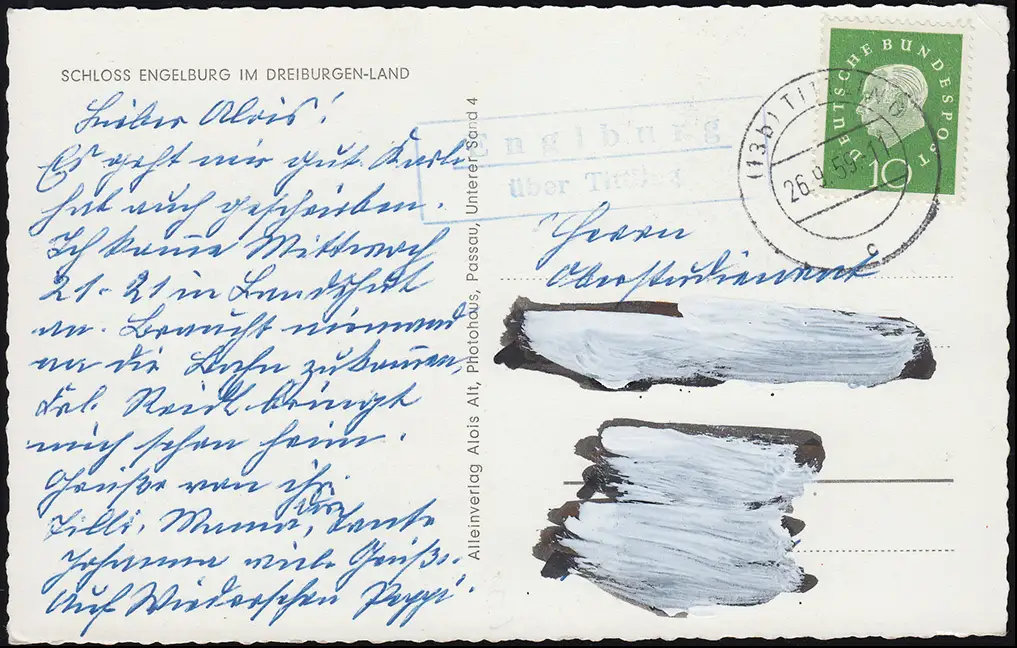 SCHLOSS ENGELBURG IM DREIBURGEN-LAND
Lieber Alois!
Es geht mir gut. Karli
hat auch geschrieben.
Ich komme Mittwoch
21.21 in Landshut
an. Braucht niemand
an die Bahn zukommen,
Frl. Reidl bringt
mich schon heim.
Grüße von ihr.
Tilli, Mama, Tante
Johanna viele Grüße.
Auf Wiedersehen Peppi.
Alleinverlag Alois Alt, Photohaus, Passau, Unterer Sand 4
Englburg
über Tittling
(13b) TITTLING
26.9.59.-11
c
DEUTSCHE BUNDESPOST
10
Herrn
Oberstudienrat